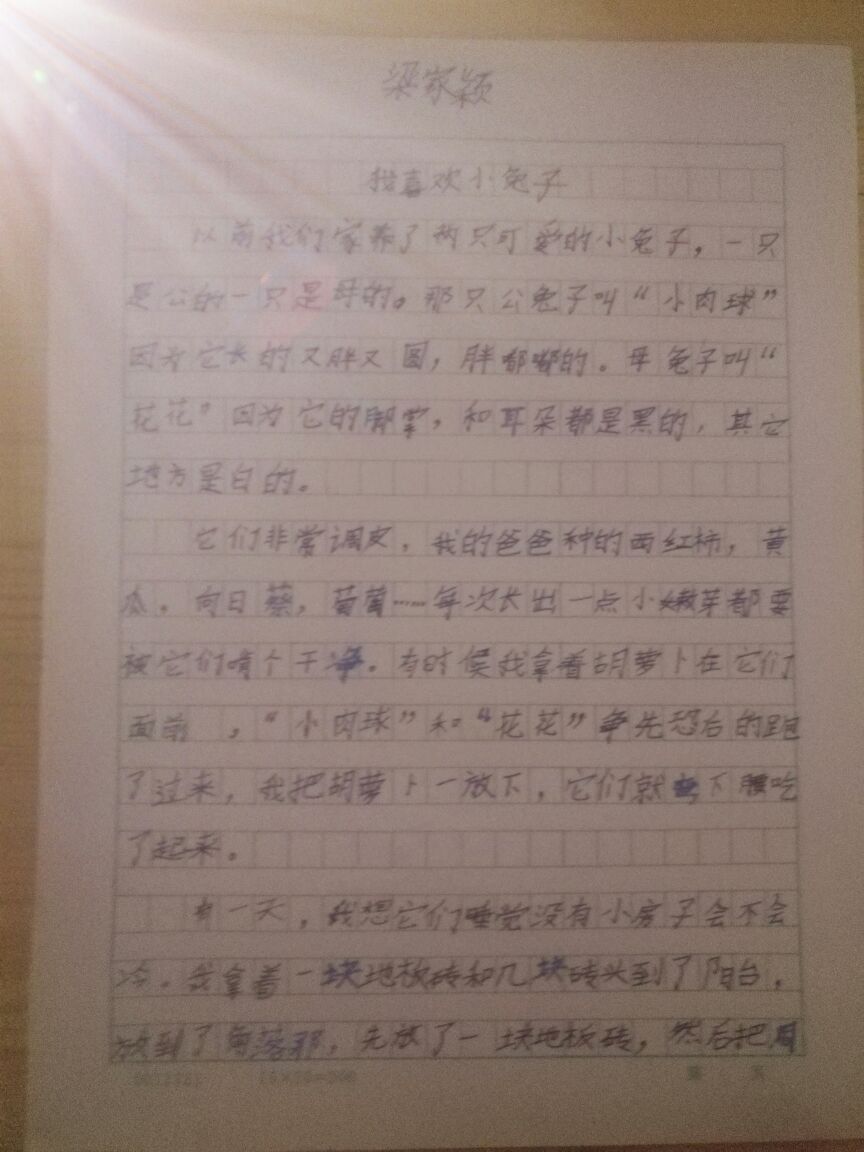 梁家颖
我喜欢小兔子
以前我们家养了两只可爱的小兔子，一只
是公的一只是母的。那只公兔子叫“小肉球”
因为它长的又胖又圆，胖嘟嘟的。母兔子叫“
花花”因为它的脚掌，和耳朵都是黑的，其它
地方是白的。
它们非常调皮，我的爸爸种的西红柿，黄
瓜，向日葵，葡萄……每次长出一点小嫩芽都要
被它们啃个干净。有时候我拿着胡萝卜在它们
面前，“小肉球”和“花花”争先恐后的跑
了过来，我把胡萝卜一放下，它们就弯下腰吃
了起来。
有一天，我想它们睡觉没有小房子会不会
冷。我拿着一块地板砖和几块砖头到了阳台，
放到了角落那，先放了一块地板砖，然后把周